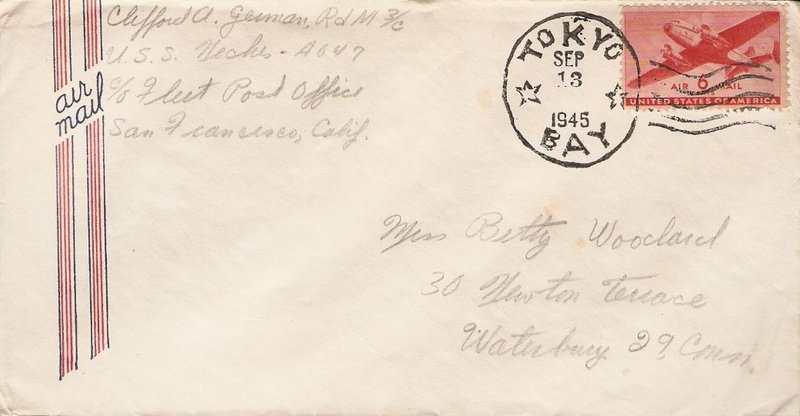 Clifford A. German, RdM 3/c
U.S.S. Neches - AO47
c/o Fleet Post Office
San Francesco, Calif.
air
mail
TOKYO
SEP
13
1945
BAY
AIR 6¢ MAIL
UNITED STATES OF AMERICA
Miss Betty Woodard
30 Newton Terrace
Waterbury 29, Conn.